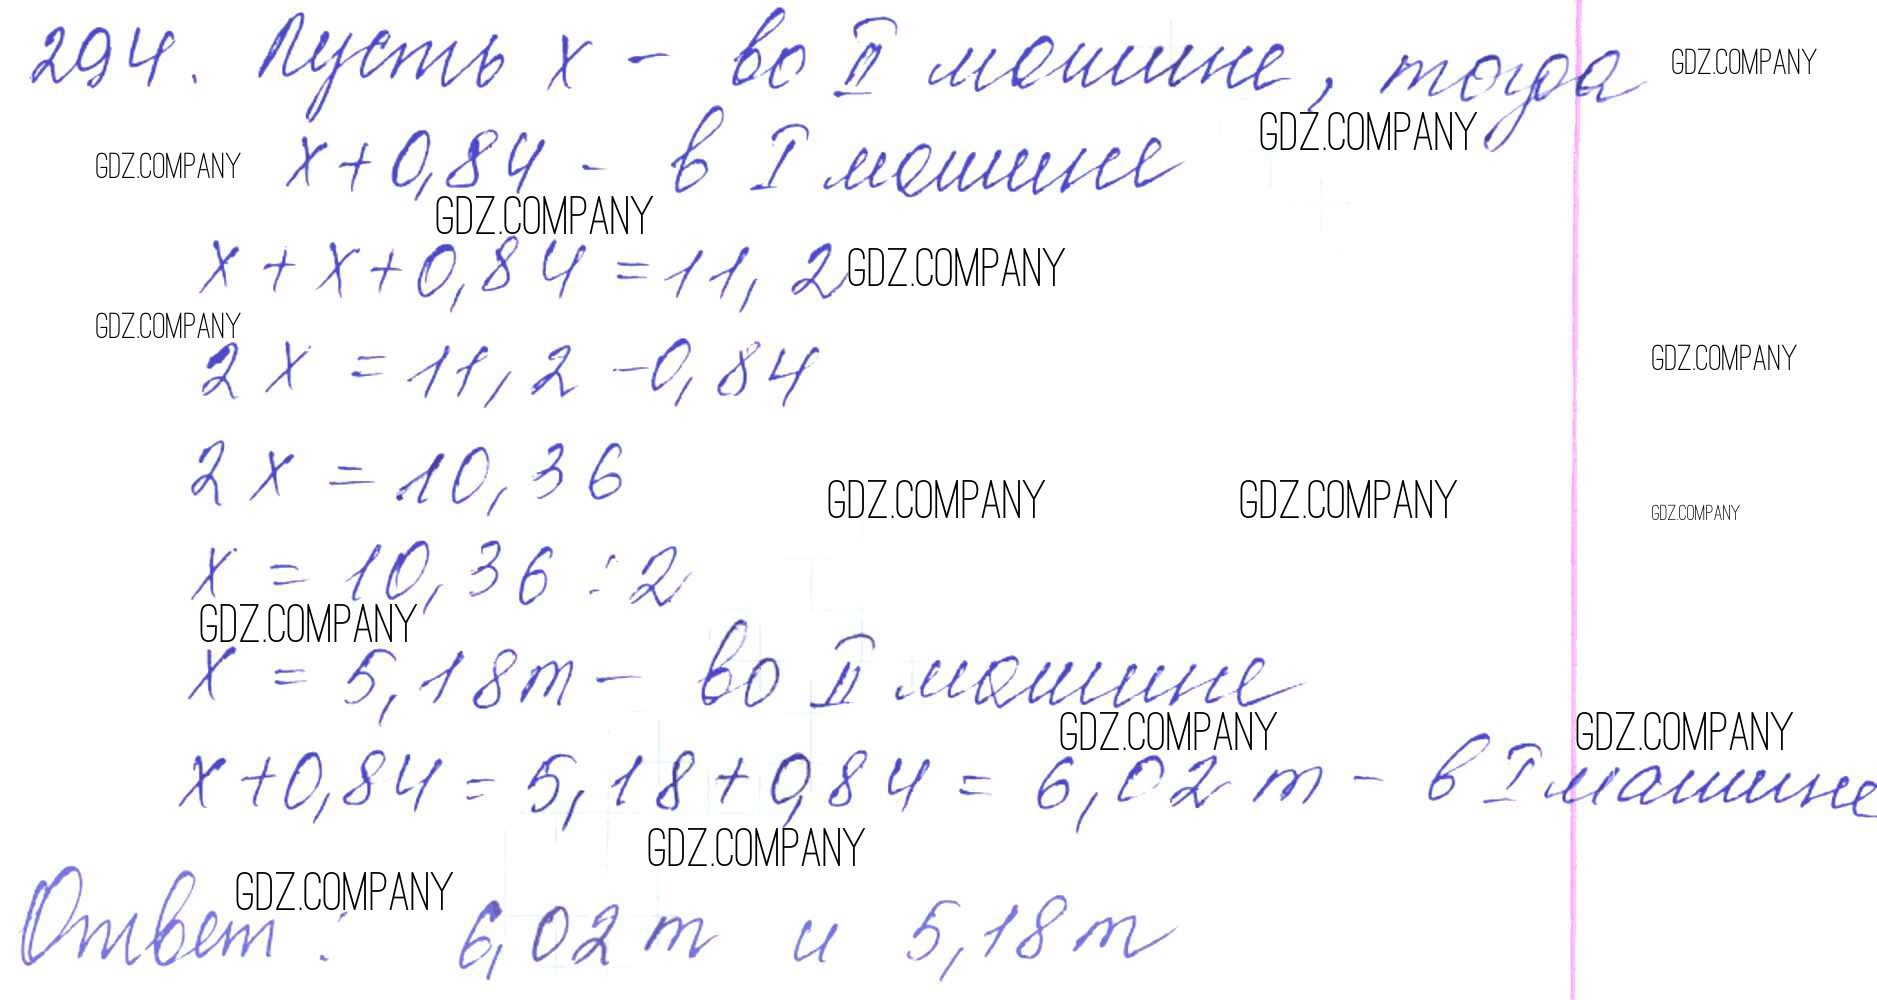 294. Пусть x - во II машине, тогда
GDZ.COMPANY
GDZ.COMPANY
GDZ.COMPANY
x+0,84 - в I машине
GDZ.COMPANY
x+x+0,84=11,2
GDZ.COMPANY
GDZ.COMPANY
2x=11,2-0,84
GDZ.COMPANY
2x=10,36
GDZ.COMPANY
GDZ.COMPANY
GDZ.COMPANY
x=10,36:2
GDZ.COMPANY
x=5,18т- во II машине
GDZ.COMPANY
GDZ.COMPANY
x+0,84=5,18+0,84=6,02т- в I машине
GDZ.COMPANY
GDZ.COMPANY
Ответ: 6,02т и 5,18т